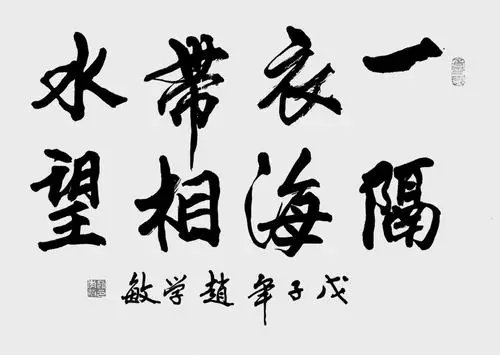 一衣帶水
隔海相望
戊子年趙学敏